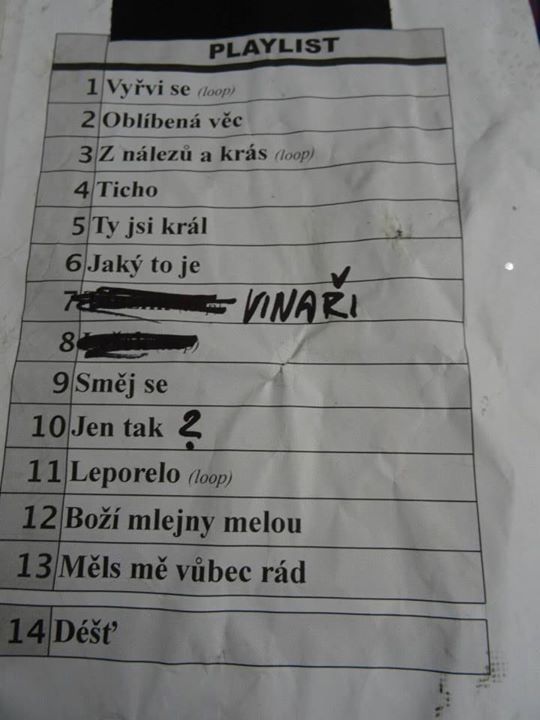 PLAYLIST
1 Vyřvi se (loop)
2 Oblíbená věc
3 Z nálezů a krás (loop)
4 Ticho
5 Ty jsi král
6 Jaký to je
7 VINAŘI
8
9 Směj se
10 Jen tak ?
11 Leporelo (loop)
12 Boží mlejny melou
13 Měls mě vůbec rád
14 Déšť